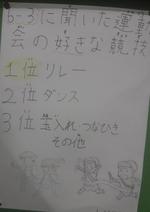 6-3に聞いた運動
会の好きな競技
1位リレー
2位ダンス
3位玉入れつなひき
その他